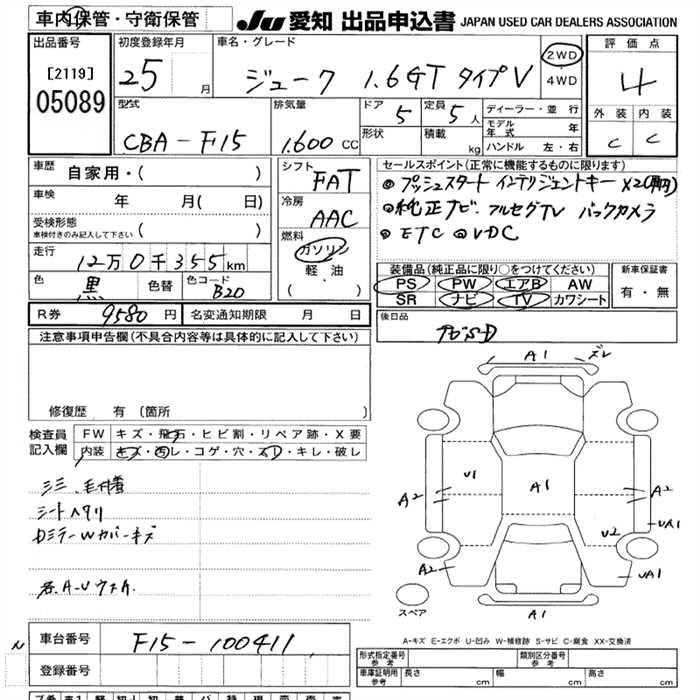 車内保管・守衛保管
JU 愛知 出品申込書 JAPAN USED CAR DEALERS ASSOCIATION
出品番号
[2119]
05089
初度登録年月
25 月
車名・グレード
ジューク 1.6GT タイプV
2WD
4WD
評価点
4
外装 内装
C C
型式
CBA-F15
排気量
1.600 CC
ドア
5
定員
5 人
形状
積載
kg
ディーラー・並行
モデル年式 年
ハンドル 左・右
車歴 自家用・( )
車検 年 月( 日)
受検形態
車検付きのみ記入して下さい ( )
走行
12万0千355km
色
黒
色替
色コード
B20
シフト
FAT
冷房
AAC
燃料
ガソリン
軽油
( ・ )
セールスポイント(正常に機能するものに限ります)
◎プッシュスタート インテリジェントキー
◎純正ナビ・フルセグTV バックカメラ
◎ETC ◎VDC
装備品(純正品に限り○をつけてください)
PS PW エアB AW
SR ナビ TV カワシート
新車保証書
有・無
R券 9580円
名変通知期限 月 日
後日品
注意事項申告欄(不具合内容等は具体的に記入して下さい)
修復歴 有(箇所 )
検査員記入欄
FW キズ・飛石・ヒビ割・リペア跡・X要
内装 キズ・汚レ・コゲ・穴・スレ・キレ・破レ
シートヘタリ
DミラーWカバーキズ
各.A-U
A1
ズレ
U1
A1
A2
A2
UA1
U2
A2
UA1
A1
スペア
A-キズ E-エクボ U-凹み W-補修跡 S-サビ C-腐食 XX-交換済
車台番号 F15-100411
登録番号
N
形式指定番号 参考
類別区分番号 参考
車庫証明用 参考
長さ cm
幅 cm
高さ cm